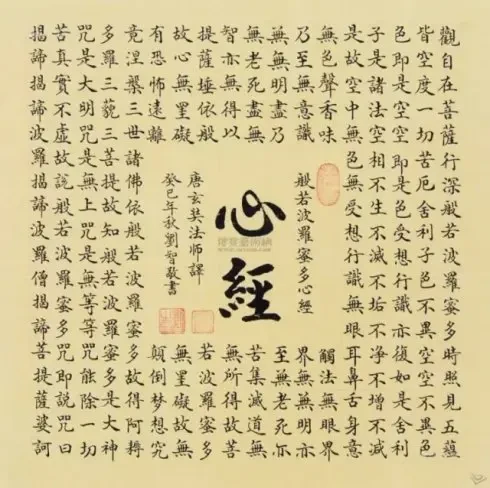 觀自在菩薩行深般若波羅蜜多時照見五蘊
皆空度一切苦厄舍利子色不異空空不異色
色即是空空即是色受想行識亦復如是舍利
子是諸法空相不生不滅不垢不淨不增不減
是故空中無色無受想行識無眼耳鼻舌身意
無色聲香味觸法無眼界
乃至無意識界無無明亦
無無明盡乃至無老死亦
無老死盡無苦集滅道無
智亦無得以無所得故菩
提薩埵依般若波羅蜜多
故心無罣礙無罣礙故無
有恐怖遠離顛倒梦想究
竟涅槃三世諸佛依般若波羅蜜多故得阿耨
多羅三藐三菩提故知般若波羅蜜多是大神
咒是大明咒是無上咒是無等等咒能除一切
苦真實不虛故說般若波羅蜜多咒即說咒曰
揭諦揭諦波羅揭諦波羅僧揭諦菩提薩婆訶
般若波羅蜜多心經
心經
唐玄奘法師譯
癸巳年秋劉智敬書